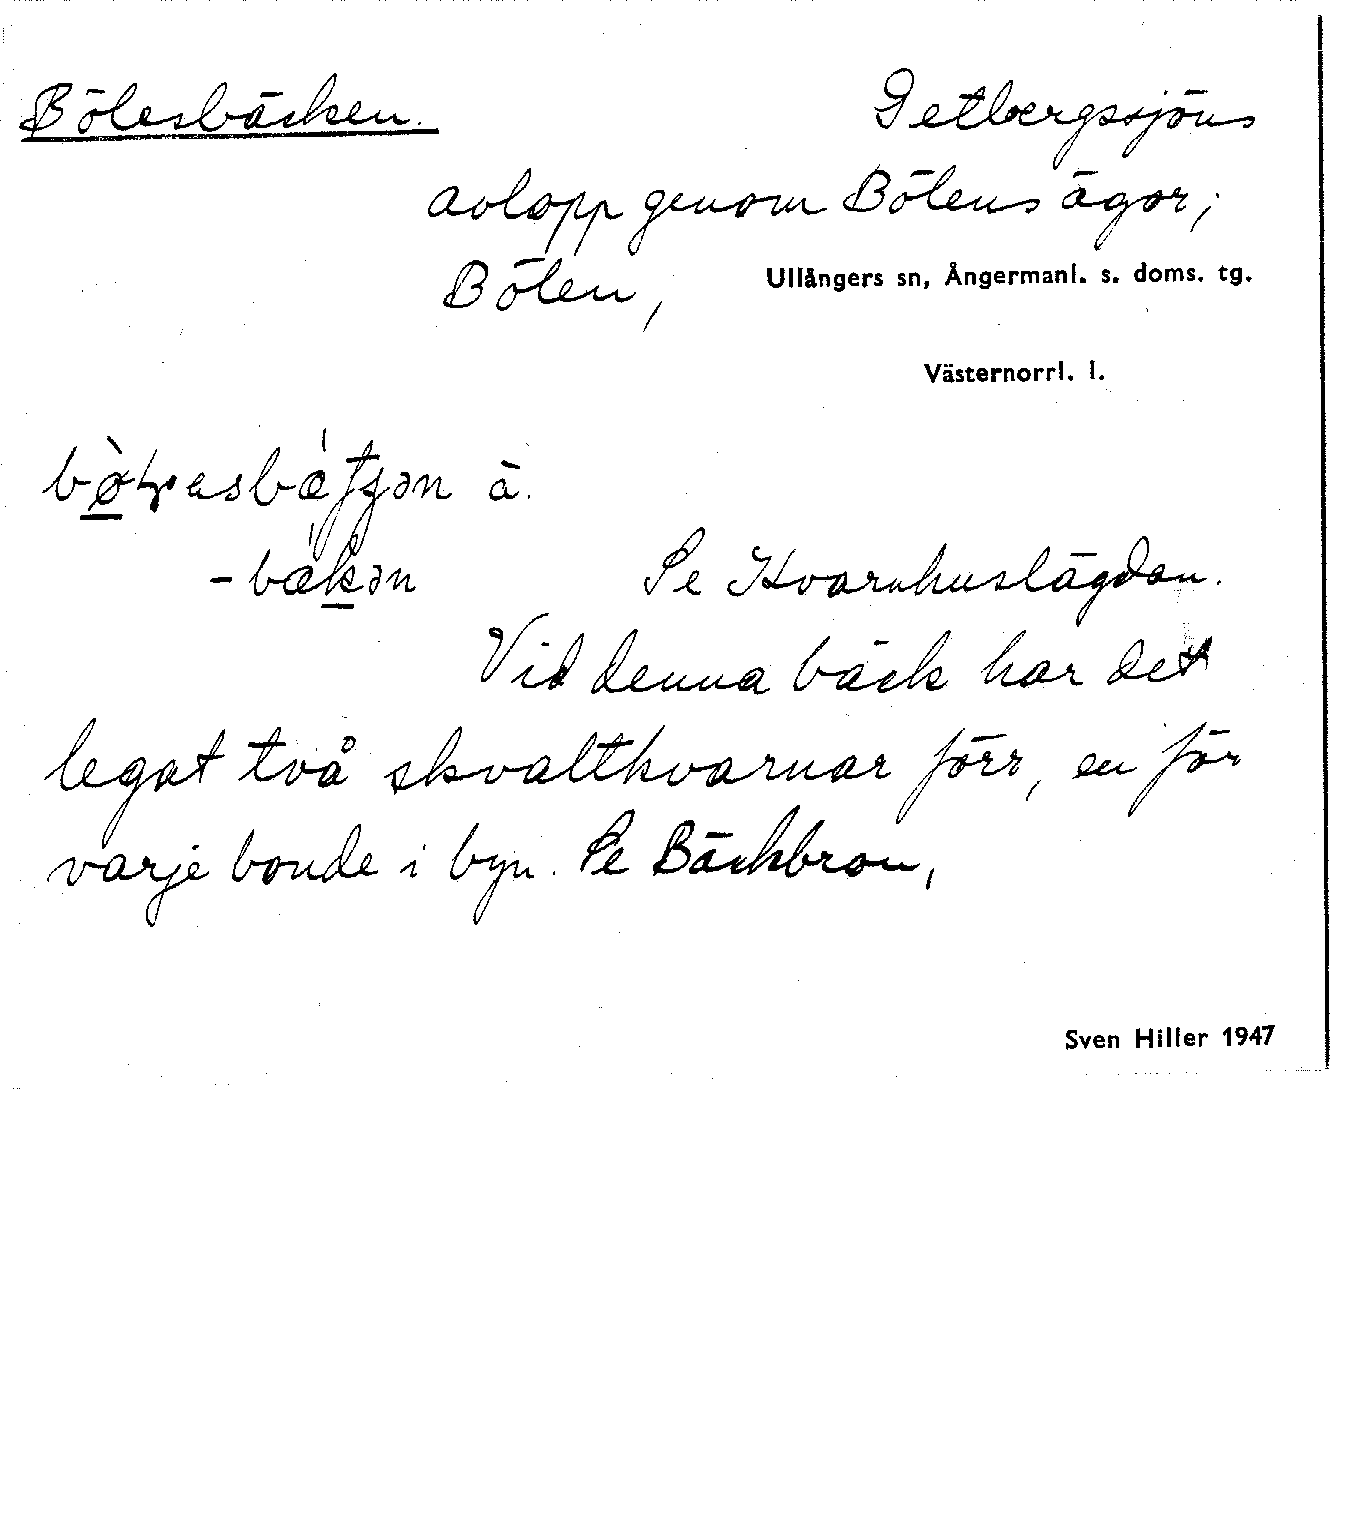 Bölesbäcken. Getbergssjöns
avlopp genom Bölens ägor;
Bölen, Ullångers sn, Ångermanl. s. doms. tg.
Västernorrl. l.
à.
-bækən Se Kvarnhuslägdan.
Vid denna bäck har det
legat två skvaltkvarnar förr, en för
varje bonde i byn. Se Bäckbron,
Sven Hiller 1947